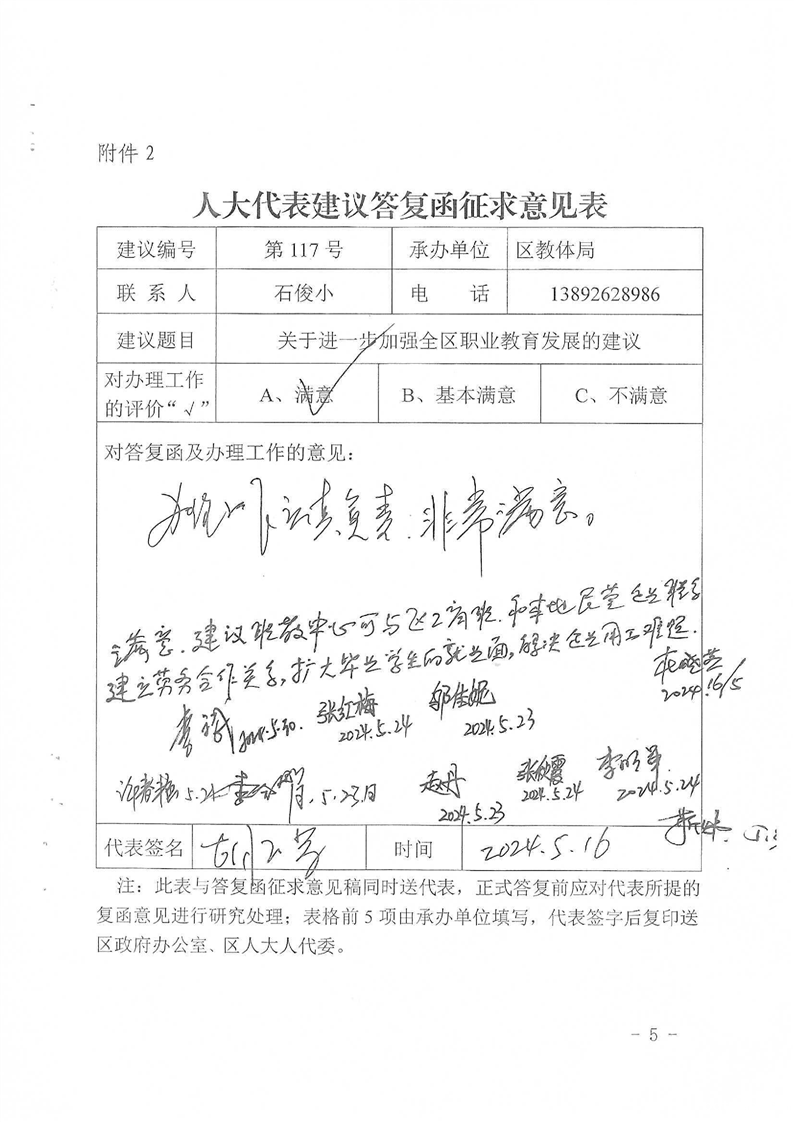 附件 2
人大代表建议答复函征求意见表
建议编号 第 117 号 承办单位 区教体局
联系人 石俊小 电话 13892628986
建议题目 关于进一步加强全区职业教育发展的建议
对办理工作的评价“√” A、满意 √ B、基本满意 C、不满意
对答复函及办理工作的意见：
认真负责，非常满意。
满意，建议职教中心可与飞工商班，和本地民营企业联系
建立劳务合作关系，扩大毕业学生的就业面，解决企业用工难题。
2024.6/5
2024.5.30. 张红梅 2024.5.24 邹佳妮 2024.5.23
5.22 5.23日 赵丹 2024.5.23 张欣霞 2024.5.24 李明军 2024.5.24
代表签名 时间 2024.5.16
注：此表与答复函征求意见稿同时送代表，正式答复前应对代表所提的
复函意见进行研究处理；表格前 5 项由承办单位填写，代表签字后复印送
区政府办公室、区人大人代委。
- 5 -